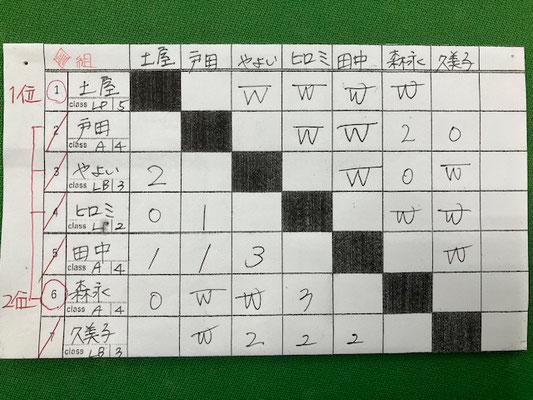 組 土屋 戸田 やよい ヒロミ 田中 森永 久美子
1位 1 土屋 W W W W
class LP 5
2 戸田 W W 2 0
class A 4
3 やよい 2 W 0 W
class LB 3
4 ヒロミ 0 1 W W
class 2
5 田中 1 1 3 W
class A 4
2位 6 森永 0 W W 3
class A 4
7 久美子 W 2 2 2
class LB 3